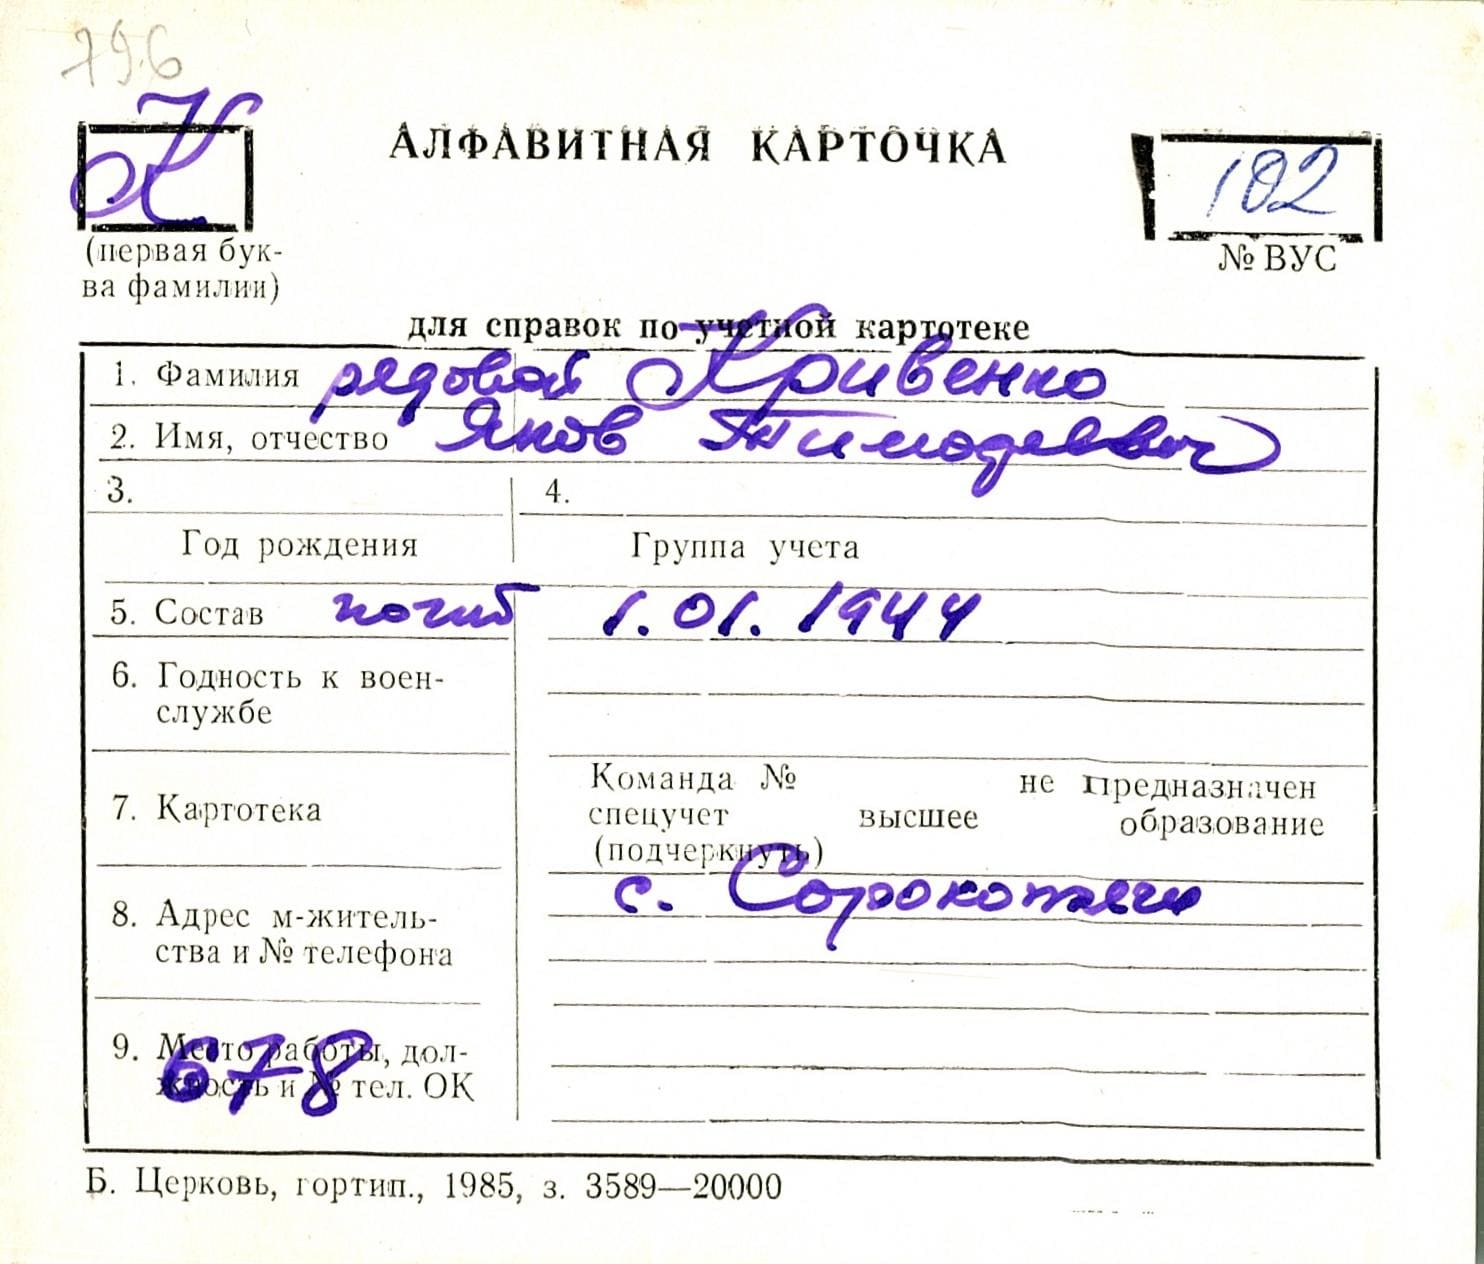 796
К
АЛФАВИТНАЯ КАРТОЧКА
102
(первая бук-
ва фамилии)
№ ВУС
для справок по учетной картотеке
1. Фамилия рядовой Кривенко
2. Имя, отчество Яков Тимофеевич
3.
4.
Год рождения
Группа учета
5. Состав погиб 1.01.1944
6. Годность к воен-
службе
7. Картотека
Команда № не предназначен
спецучет высшее образование
(подчеркнуть)
8. Адрес м-житель-
ства и № телефона
с. Сорокотяги
9. Место работы, дол-
жность и № тел. ОК
678
Б. Церковь, гортип., 1985, з. 3589—20000